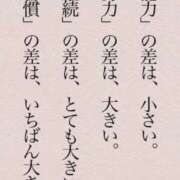 力」の差は、小さい。
力」の差は、大きい。
続」の差は、とても大きい
慣」の差は、いちばん大き